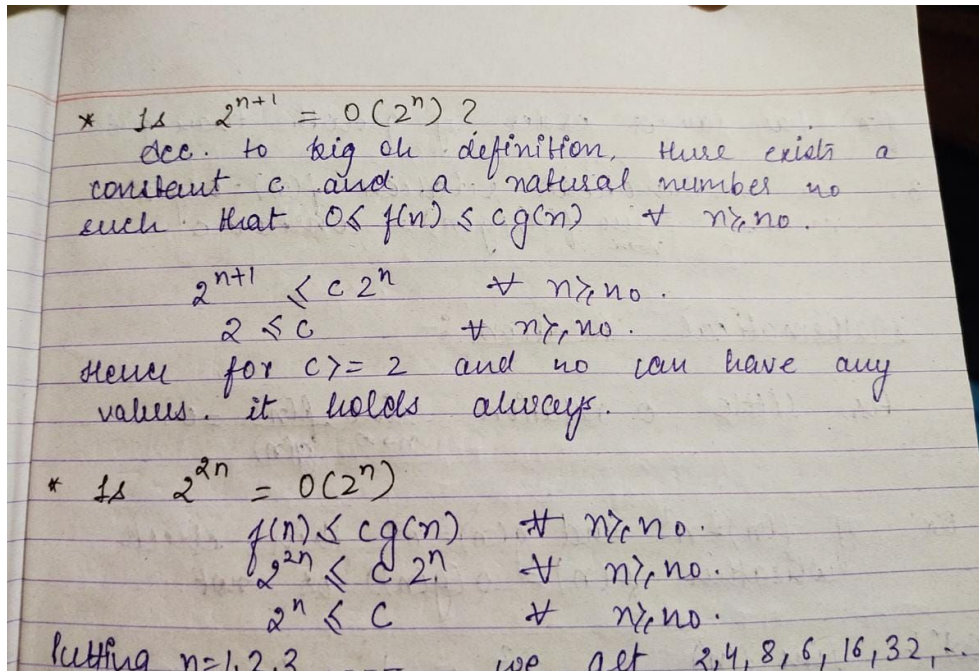 * Is 2^{n+1} = O(2^n) ?
Acc. to big oh definition, there exists a
constant c and a natural number no
such that 0≤ f(n) ≤ cg(n) ∀ n≥no.
2^{n+1} ≤ c 2^n ∀ n≥no.
2 ≤ c ∀ n≥no.
Hence for c>= 2 and no can have any
values. it holds always.
* Is 2^{2n} = O(2^n)
f(n) ≤ cg(n) ∀ n≥no.
2^{2n} ≤ c 2^n ∀ n≥no.
2^n ≤ c ∀ n≥no.
Putting n=1,2,3 ---- we get 2,4,8,6,16,32,..